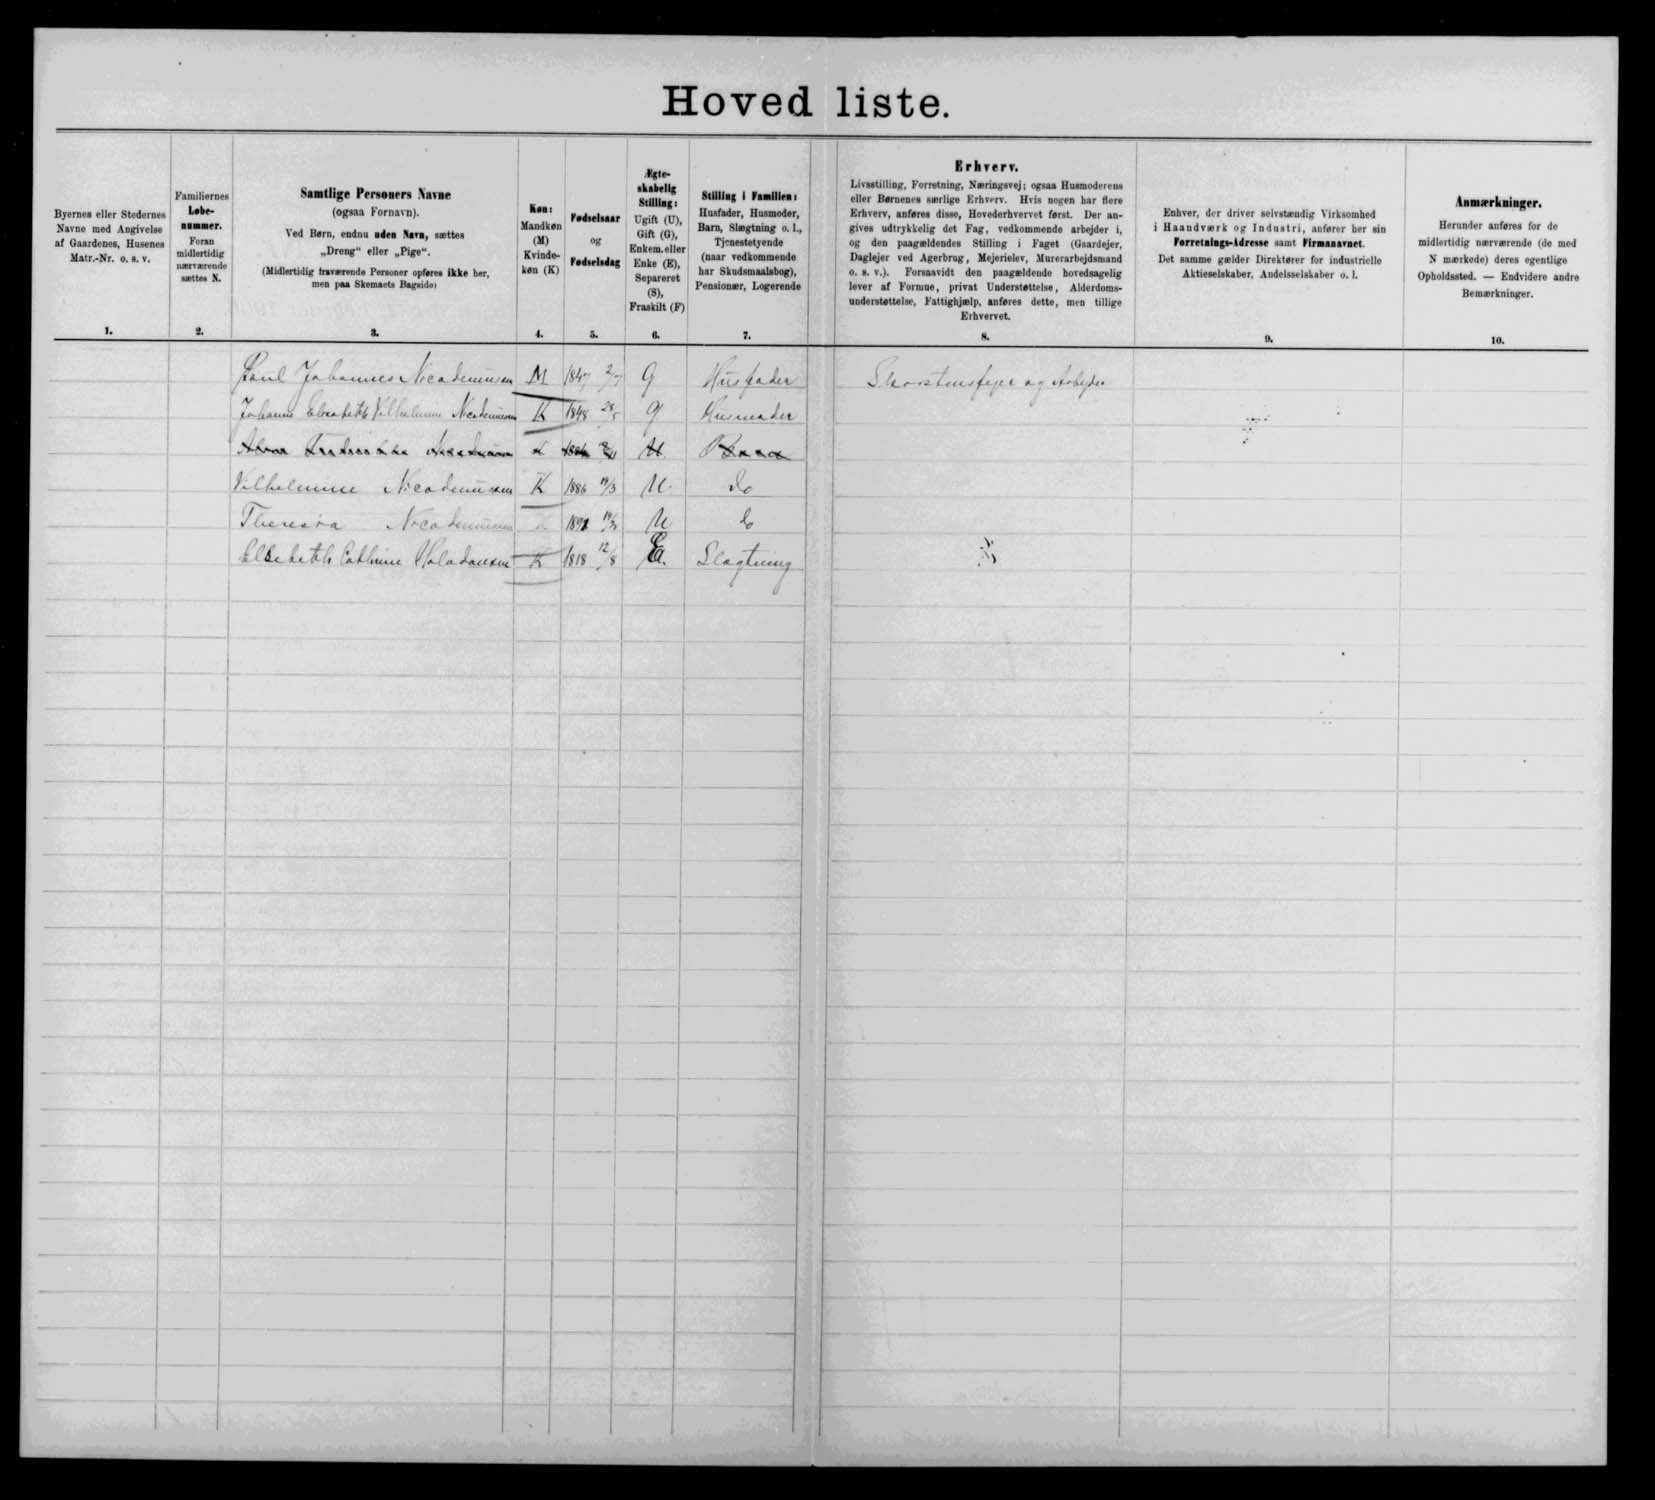 Hovedliste.
Byernes eller Stedernes
Navne med Angivelse
af Gaardenes, Husenes
Matr.-Nr. o. s. v.
1.
Familiernes
Løbe-
nummer.
Foran
midlertidig
nærværende
sættes N.
2.
Samtlige Personers Navne
(ogsaa Fornavn).
Ved Børn, endnu uden Navn, sættes
„Dreng“ eller „Pige“.
(Midlertidig fraværende Personer opføres ikke her,
men paa Skemaets Bagside)
3.
Køn:
Mandkøn
(M)
Kvinde-
køn (K)
4.
Fødselsaar
og
Fødselsdag
5.
Ægte-
skabelig
Stilling:
Ugift (U),
Gift (G),
Enkem. eller
Enke (E),
Separeret
(S),
Fraskilt (F)
6.
Stilling i Familien:
Husfader, Husmoder,
Barn, Slægtning o. l.,
Tjenestetyende
(naar vedkommende
har Skudsmaalsbog),
Pensionær, Logerende
7.
Erhverv.
Livsstilling, Forretning, Næringsvej; ogsaa Husmoderens
eller Børnenes særlige Erhverv. Hvis nogen har flere
Erhverv, anføres disse, Hovederhvervet først. Der an-
gives udtrykkelig det Fag, vedkommende arbejder i,
og den paagældendes Stilling i Faget (Gaardejer,
Daglejer ved Agerbrug, Mejerielev, Murerarbejdsmand
o. s. v.). Forsaavidt den paagældende hovedsagelig
lever af Formue, privat Understøttelse, Alderdoms-
understøttelse, Fattighjælp, anføres dette, men tillige
Erhvervet.
8.
Enhver, der driver selvstændig Virksomhed
i Haandværk og Industri, anfører her sin
Forretnings-Adresse samt Firmanavnet.
Det samme gælder Direktører for industrielle
Aktieselskaber, Andelsselskaber o. l.
9.
Anmærkninger.
Herunder anføres for de
midlertidig nærværende (de med
N mærkede) deres egentlige
Opholdssted. — Endvidere andre
Bemærkninger.
10.
Poul Johannes Nicodemusen M 1847 2/7 G Husfader Skorstensfejer og Arbejder
Johanne Elisabeth Vilhelmine Nicodemusen K 1848 28/5 G Husmoder
Nicodemusen K U Barn
Vilhelmine Nicodemusen K 1886 19/3 U do
Theresia Nicodemusen K U do
Elsebeth Cathrine K 1818 12/8 E. Slægtning